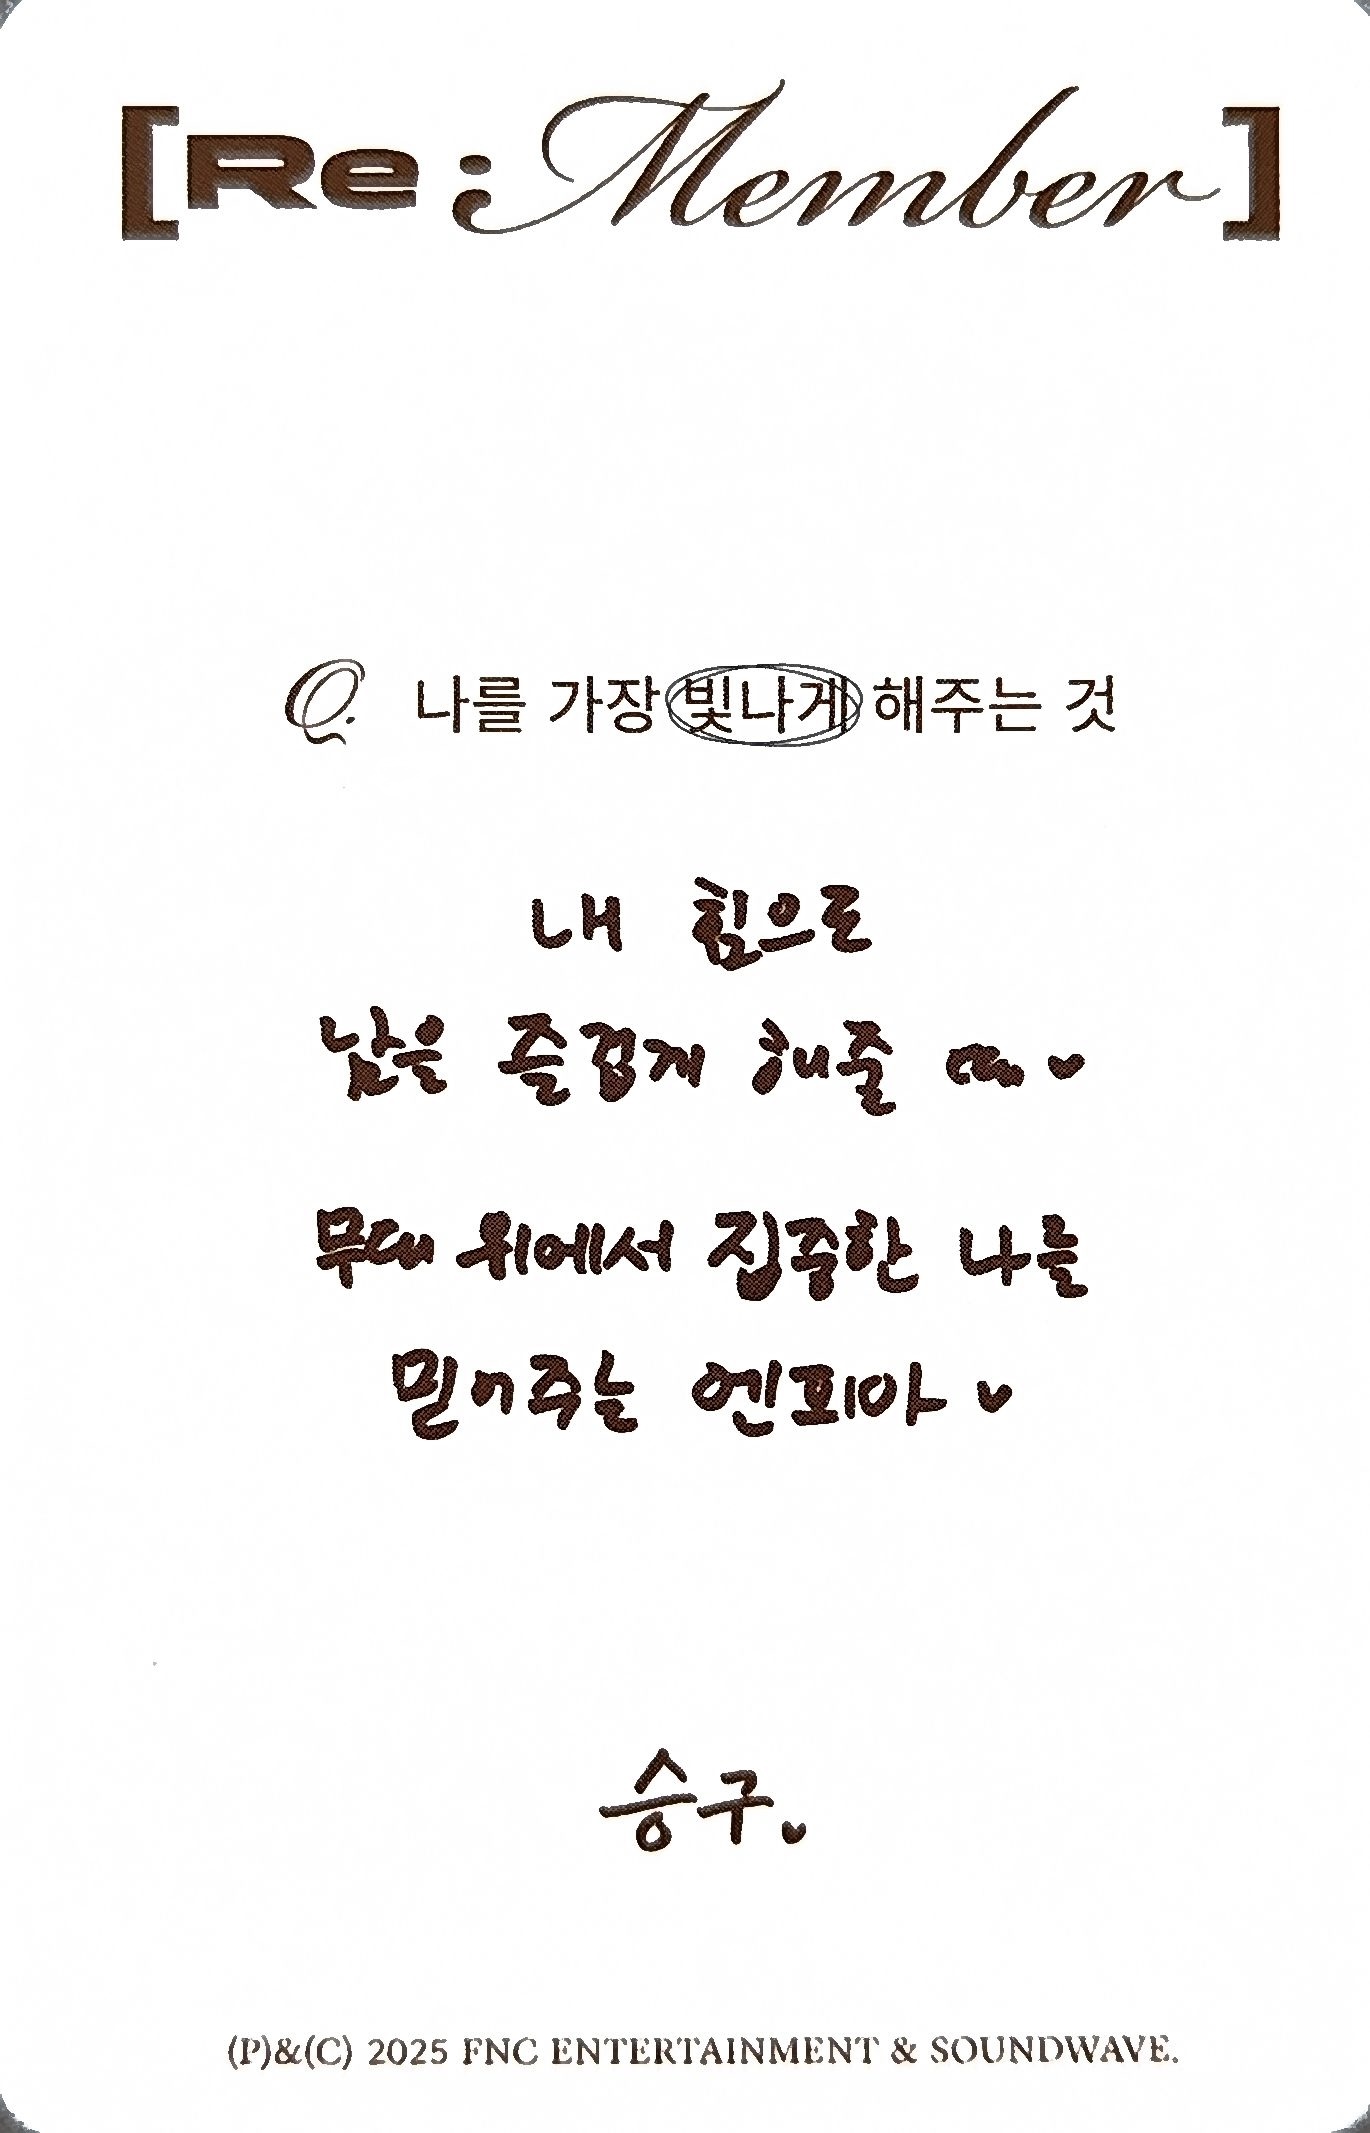 [Re:Member]
Q. 나를 가장 빛나게 해주는 것
내 힘으로
남은 즐겁게 해줄 때♥
무대 위에서 집중한 나를
믿어주는 엔피아♥
승구♥
(P)&(C) 2025 FNC ENTERTAINMENT & SOUNDWAVE.